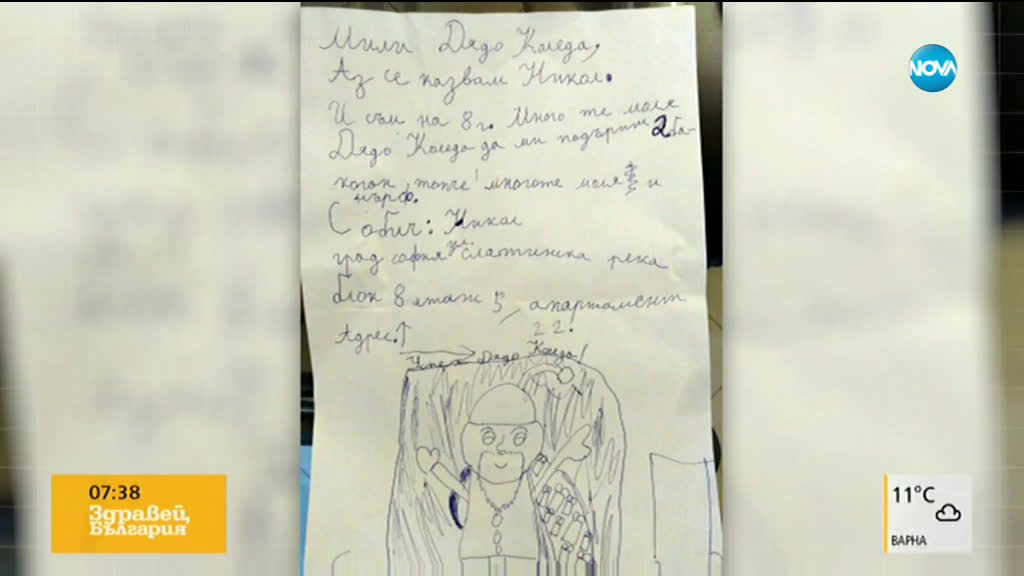 Мили Дядо Коледа,
Аз се казвам Никол.
И съм на 8 г. Много те моля
Дядо Коледа да ми подъриш 2 ба-
когон топче! многоте моля и
нърф.
С обич: Никол
град софия ул. слатинска река
блок 8 етаж 5, апартамент
22.
Адрес.↑
Дядо Коледа!
NOVA
07:38
Здравей,
България
11°C
ВАРНА